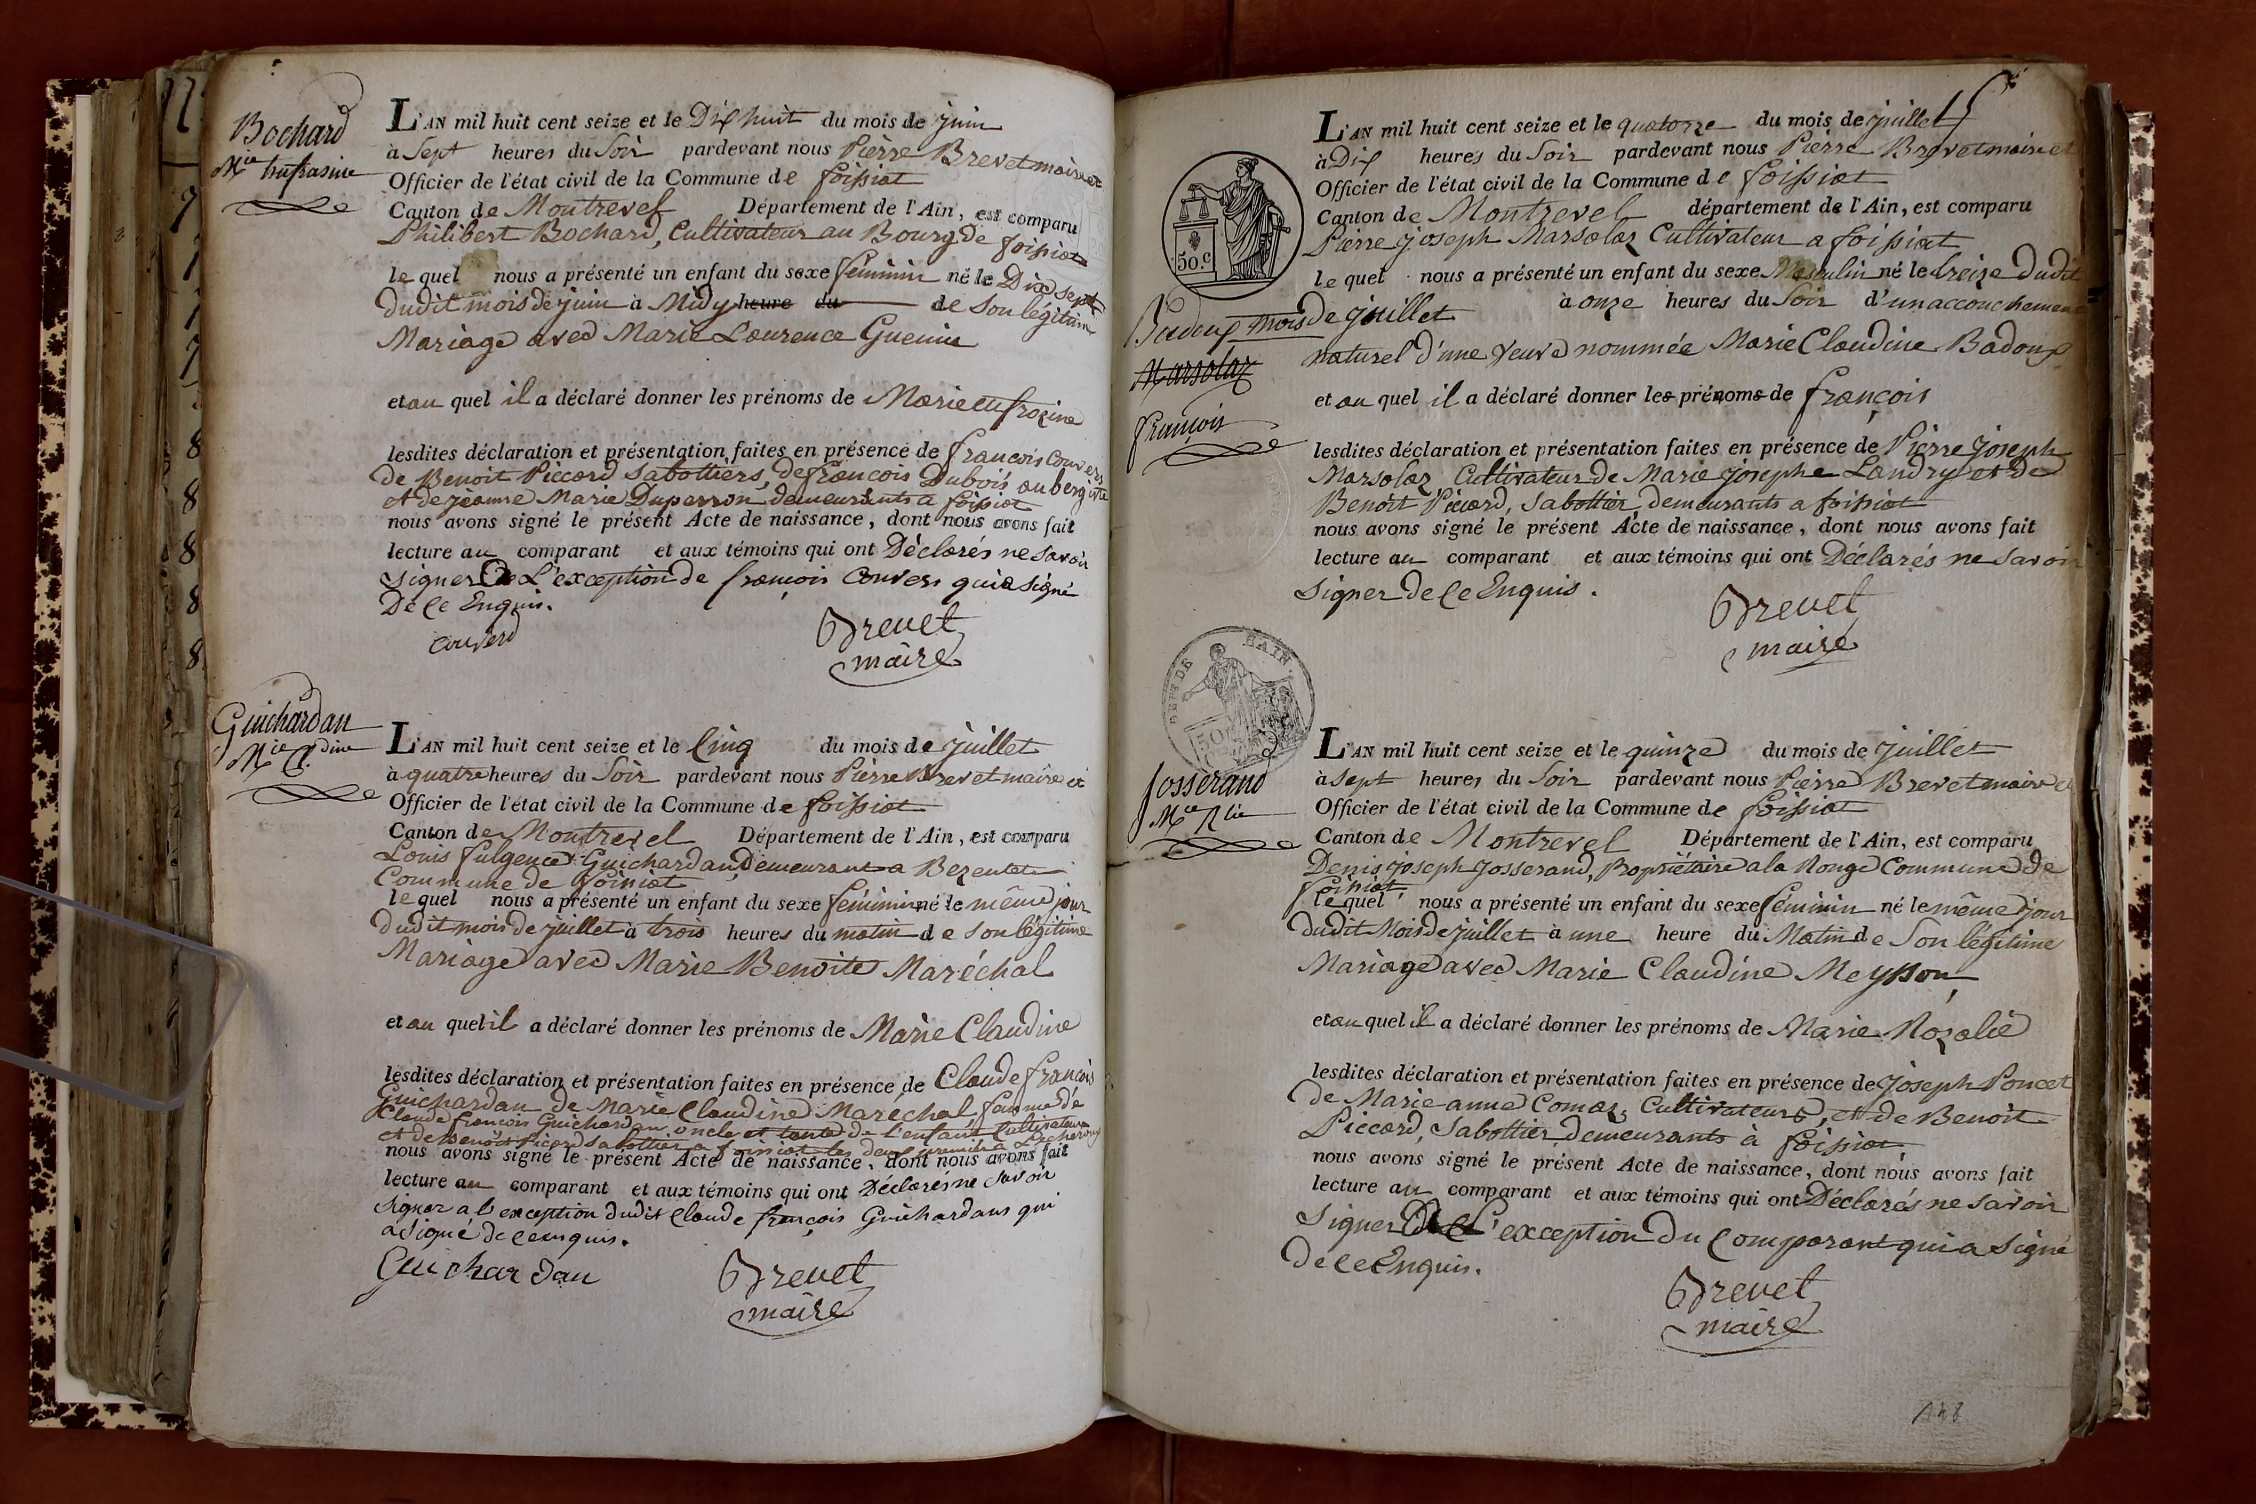 Bochard
Mie Eufrasine
L'AN mil huit cent seize et le Dix huit du mois de juin
à Sept heures du Soir pardevant nous Pierre Brevet maire et
Officier de l'état civil de la Commune de foissiat
Canton de Montrevel Département de l'Ain, est comparu
Philibert Bochard, Cultivateur au Bourg de foissiat
le quel nous a présenté un enfant du sexe féminin né le Dix sept
dudit mois de juin à Midy heure du de Son légitime
Mariage avec Marie Laurence Guenin
et au quel il a déclaré donner les prénoms de Marie eufrozine
lesdites déclaration et présentation faites en présence de francois Convers
de Benoit Piccard Sabottiers, de francois Dubois aubergiste
et de jeanne Marie Duperron demeurants a foissiat
nous avons signé le présent Acte de naissance, dont nous avons fait
lecture au comparant et aux témoins qui ont Déclarés ne Savoir
Signer De L'exception de françois Convers qui a Signé
De Ce Enquis.
convers
Brevet
maire
Guichardan
Mie Cl.dine
L'AN mil huit cent seize et le Cinq du mois de juillet
à quatre heures du Soir pardevant nous Pierre Brevet maire et
Officier de l'état civil de la Commune de foissiat
Canton de Montrevel Département de l'Ain, est comparu
Louis fulgence Guichardan, Demeurant a Bezentet
Commune de foissiat
le quel nous a présenté un enfant du sexe féminin né le même jour
dudit mois de juillet à trois heures du matin de Son légitime
Mariage avec Marie Benoite Maréchal
et au quel il a déclaré donner les prénoms de Marie Claudine
lesdites déclaration et présentation faites en présence de Claude francois
Guichardan de Marie Claudine Maréchal femme de
Claude francois Guichardan, oncle et tante de l'enfant Cultivateurs
et de Benoit Picard Sabottier a foissiat les deux premiers a
nous avons signé le présent Acte de naissance, dont nous avons fait
lecture au comparant et aux témoins qui ont Déclarés ne Savoir
Signer a l'exception dudit Claude françois Guichardans qui
a Signé de ce enquis.
Guichardau
Brevet
maire
L'AN mil huit cent seize et le quatorze du mois de juillet
à Dix heures du Soir pardevant nous Pierre Brevet maire et
Officier de l'état civil de la Commune de foissiat
Canton de Montrevel département de l'Ain, est comparu
Pierre joseph Marsolaz Cultivateur a foissiat
50.c
le quel nous a présenté un enfant du sexe Masculin né le treize Dudit
mois de juillet à onze heures du Soir d'un accouchement
Badoux
naturel d'une Veuve nommée Marie Claudine Badoux
Marsolaz
et au quel il a déclaré donner les prénoms de françois
françois
lesdites déclaration et présentation faites en présence de Pierre joseph
Marsolaz Cultivateur de Marie josephe Landry et de
Benoit Piccard, Sabottier demeurants a foissiat
nous avons signé le présent Acte de naissance, dont nous avons fait
lecture au comparant et aux témoins qui ont Déclarés ne Savoir
Signer de Ce Enquis.
Brevet
maire
Josserand
Mie Rlie
L'AN mil huit cent seize et le quinze du mois de juillet
à Sept heures du Soir pardevant nous Pierre Brevet maire et
Officier de l'état civil de la Commune de foissiat
Canton de Montrevel Département de l'Ain, est comparu
Denis joseph Josserand, Propriétaire a la Rouge Commune de
foissiat
le quel nous a présenté un enfant du sexe féminin né le même jour
dudit Mois de juillet à une heure du Matin de Son légitime
Mariage avec Marie Claudine Meysson
et au quel il a déclaré donner les prénoms de Marie Rozalie
lesdites déclaration et présentation faites en présence de joseph Poncet
de Marie anne Comaz, Cultivateurs, et de Benoit
Piccard, Sabottier demeurants à foissiat
nous avons signé le présent Acte de naissance, dont nous avons fait
lecture au comparant et aux témoins qui ont Déclarés ne Savoir
Signer De L'exception Du Comparant qui a Signé
De Ce Enquis.
Brevet
maire
148